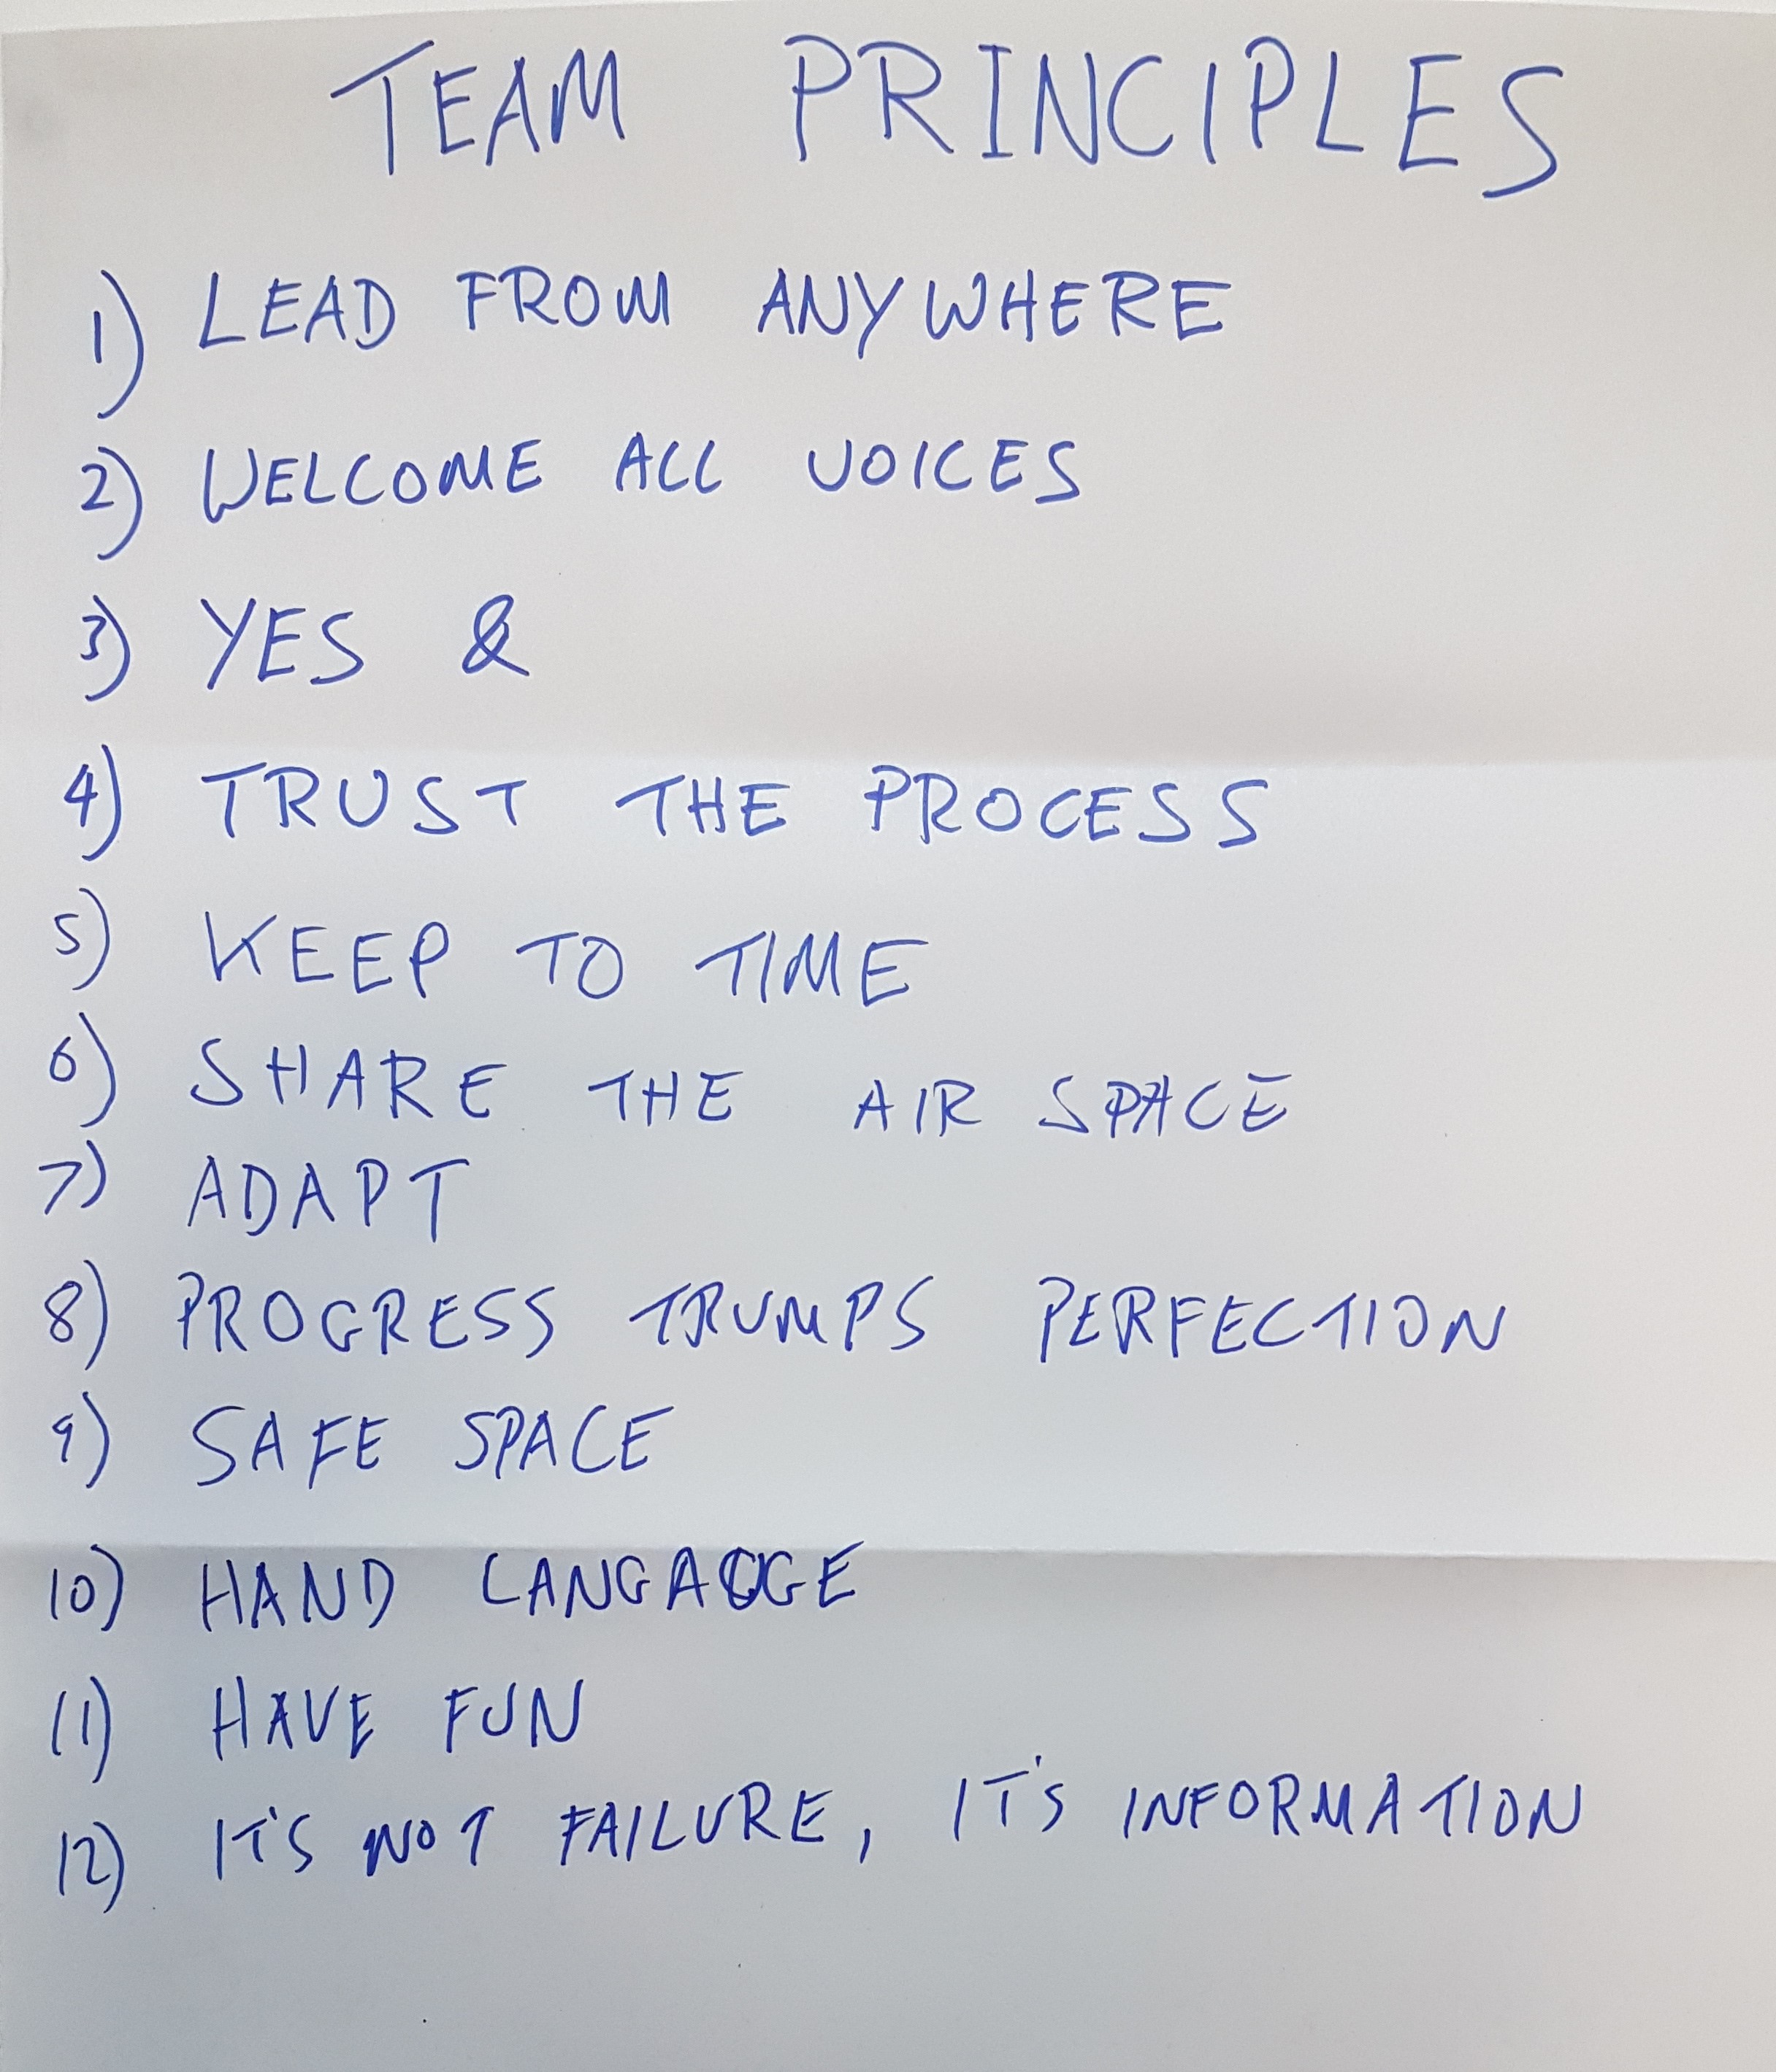 TEAM PRINCIPLES
1) LEAD FROM ANYWHERE
2) WELCOME ALL VOICES
3) YES &
4) TRUST THE PROCESS
5) KEEP TO TIME
6) SHARE THE AIR SPACE
7) ADAPT
8) PROGRESS TRUMPS PERFECTION
9) SAFE SPACE
10) HAND
11) HAVE FUN
12) IT'S NOT FAILURE, IT'S INFORMATION